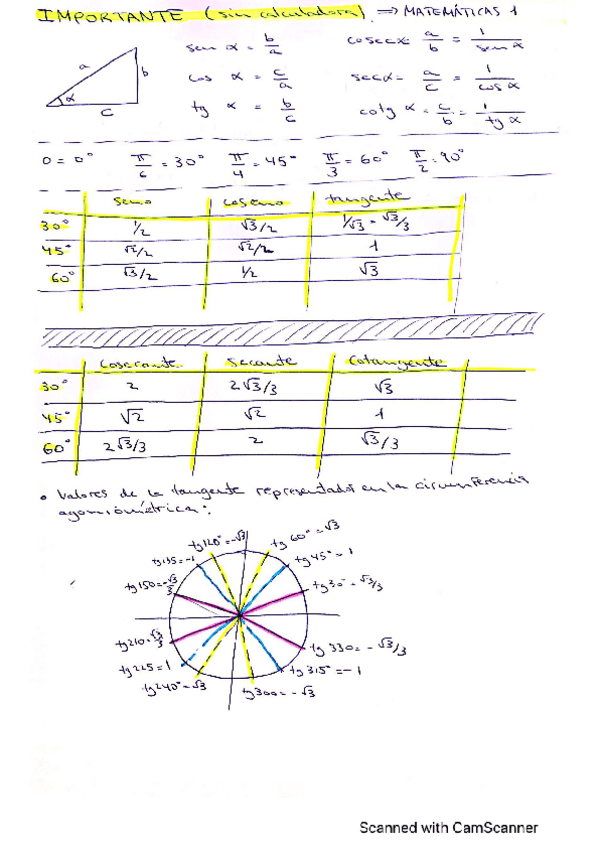 IMPORTANTE (sin calculadora) ⇒ MATEMÁTICAS 1
sen α = b/a cosec α = a/b = 1/sen α
cos α = c/a sec α = a/c = 1/cos α
tg α = b/c cotg α = c/b = 1/tg α
a b c α
0 = 0° π/6 = 30° π/4 = 45° π/3 = 60° π/2 = 90°
seno coseno tangente
30° 1/2 √3/2 1/√3 = √3/3
45° √2/2 √2/2 1
60° √3/2 1/2 √3
Cosecante Secante Cotangente
30° 2 2√3/3 √3
45° √2 √2 1
60° 2√3/3 2 √3/3
• Valores de la tangente representados en la circunferencia
agoniométrica:
tg 120° = -√3 tg 60° = √3
tg 135 = -1 tg 45° = 1
tg 150 = -√3/3 tg 30° = √3/3
tg 210 = √3/3 tg 330 = -√3/3
tg 225 = 1 tg 315° = -1
tg 240° = √3 tg 300 = -√3
Scanned with CamScanner